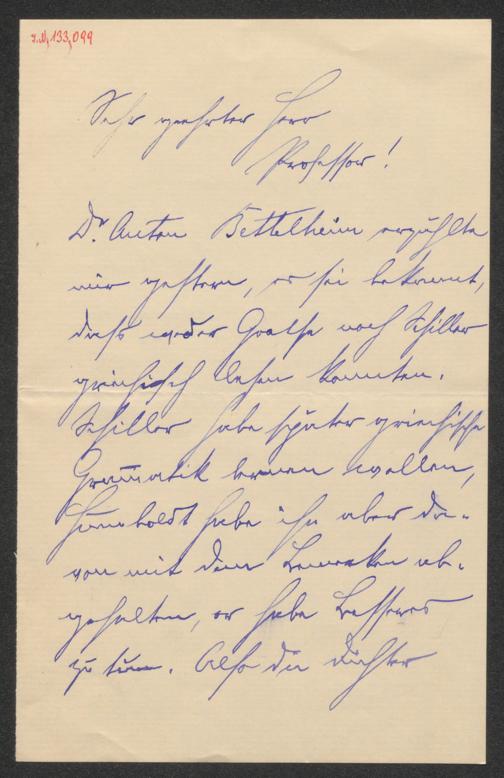 I.N. 133,099
Sehr geehrter Herr
Professor!
Dr. Anton Bettelheim erzählte
mir gestern, es sei bekannt,
dass weder Goethe noch Schiller
griechisch lesen konnten.
Schiller habe später griechische
Grammatik lernen wollen,
Humboldt habe ihn aber da-
von mit dem Bemerken ab-
gehalten, er habe Besseres
zu tun. Also die Dichter